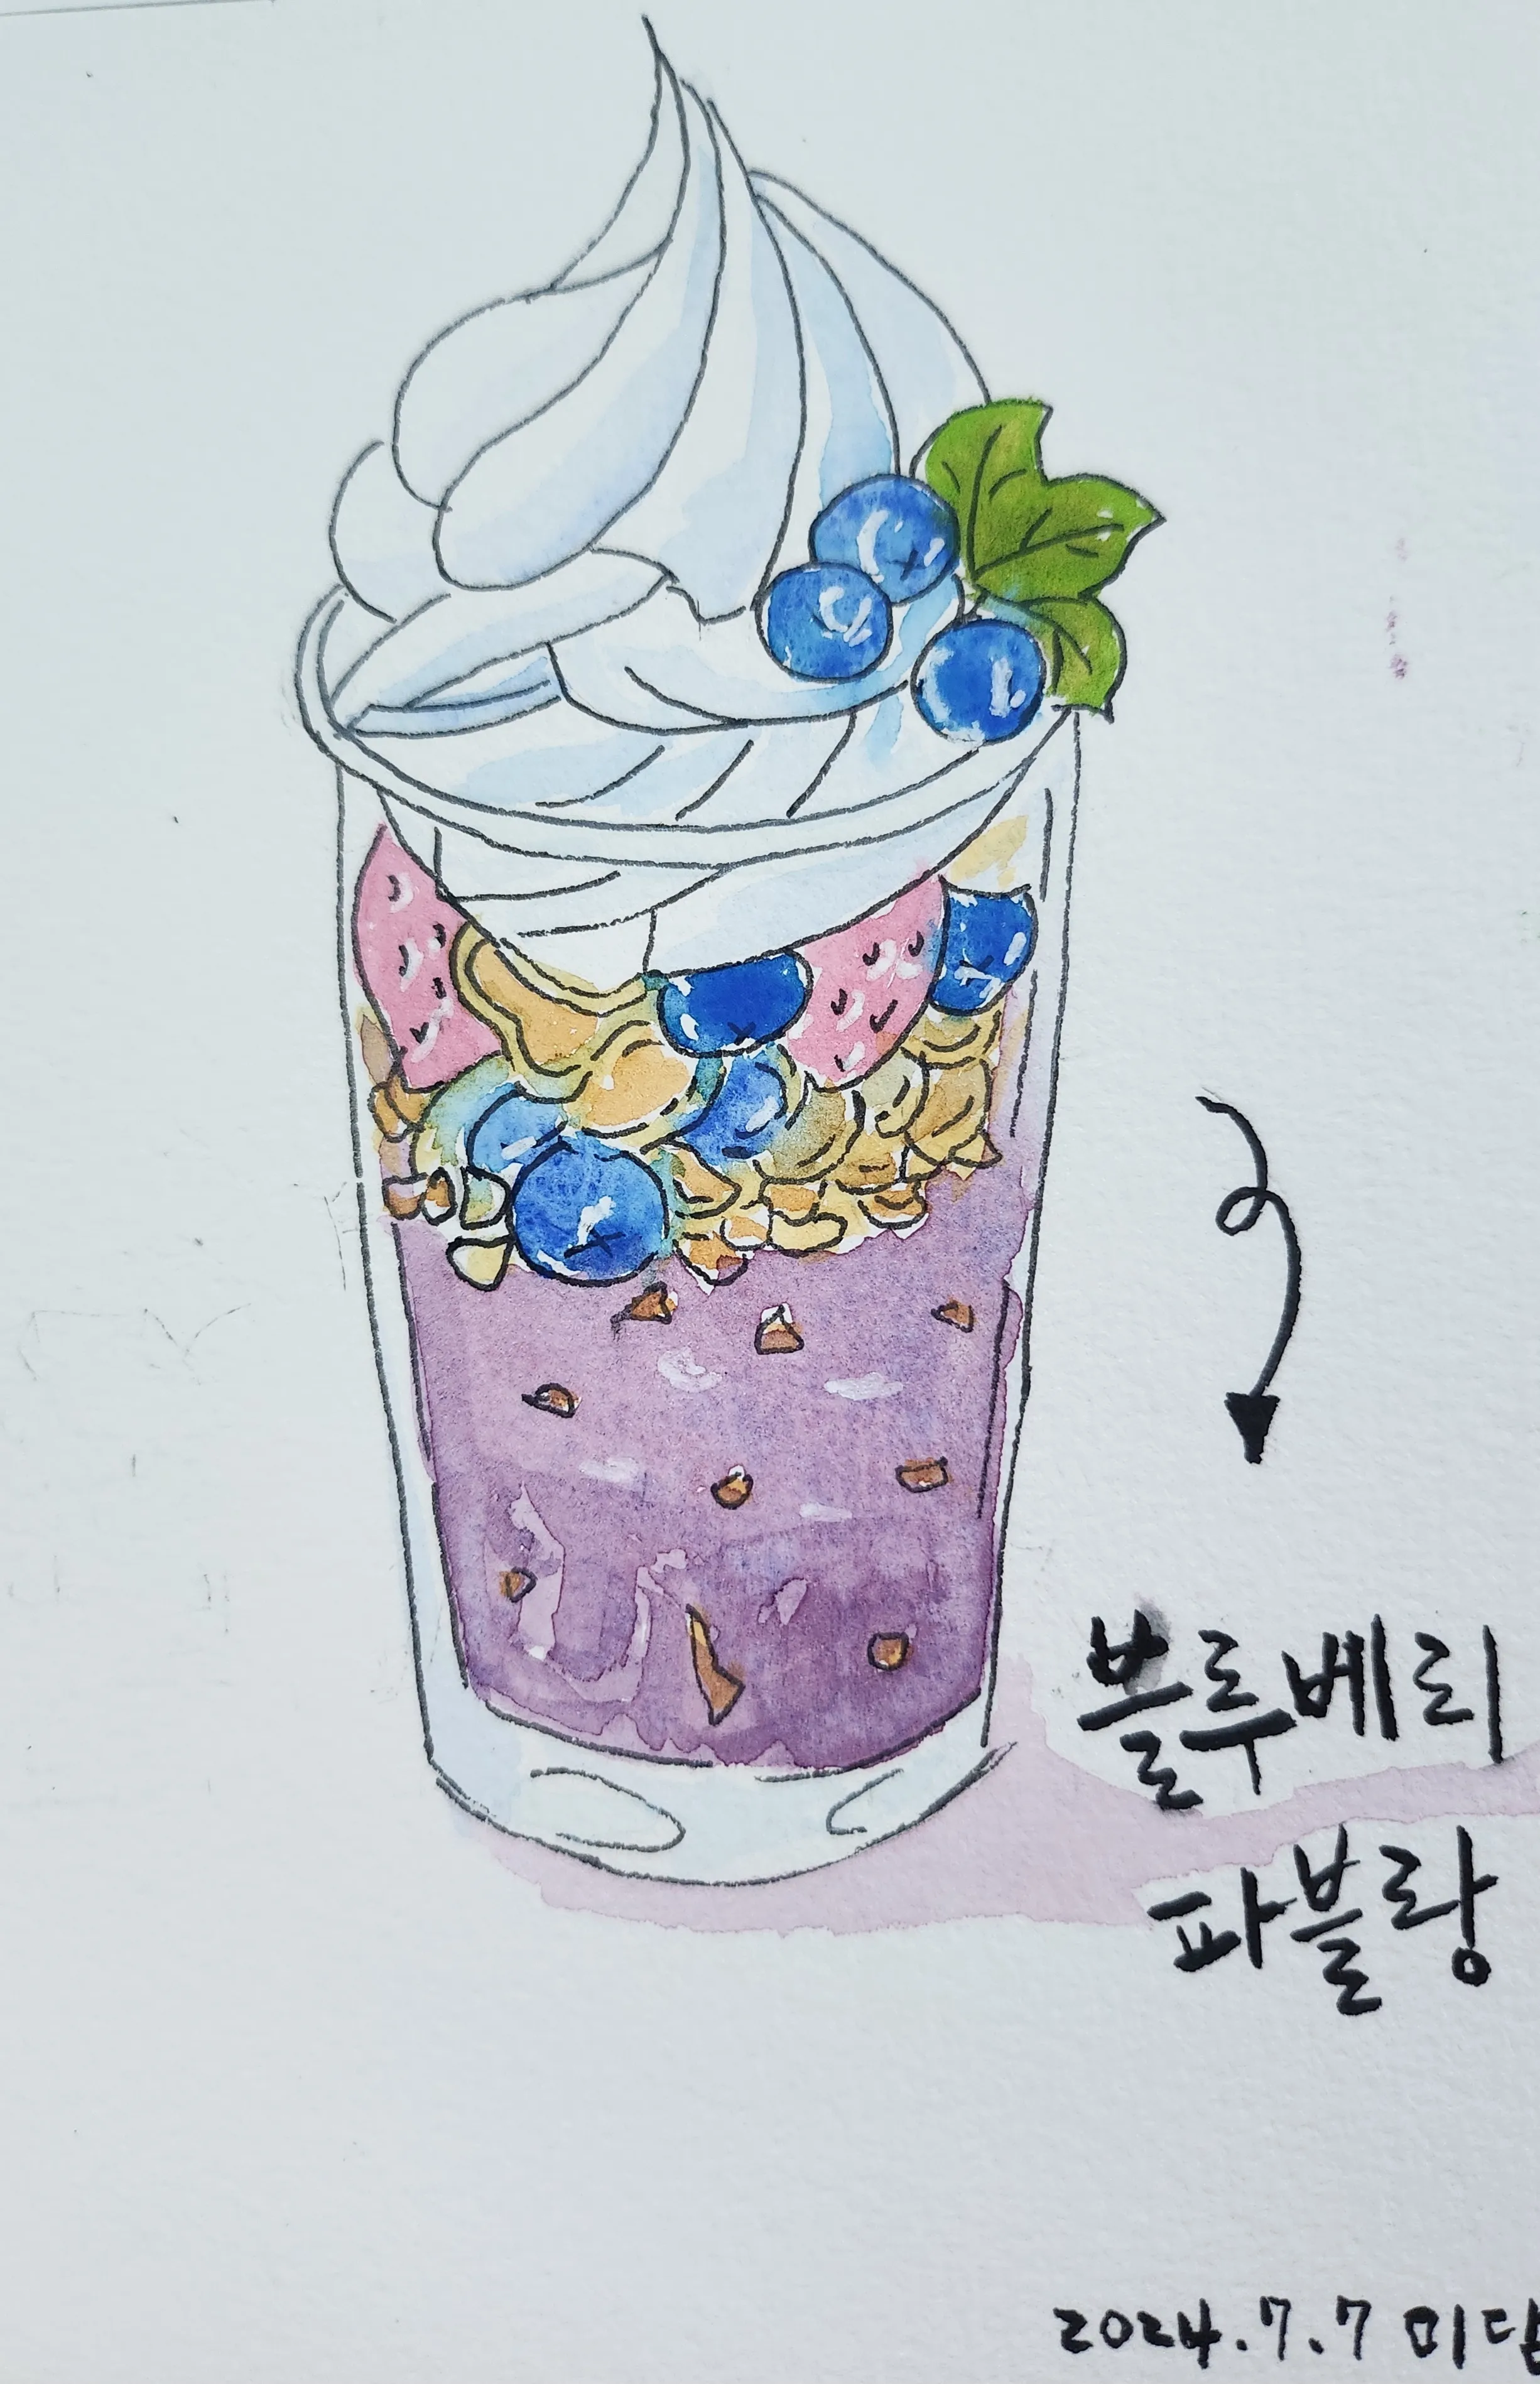 블루베리
파블랑
2024.7.7 미담